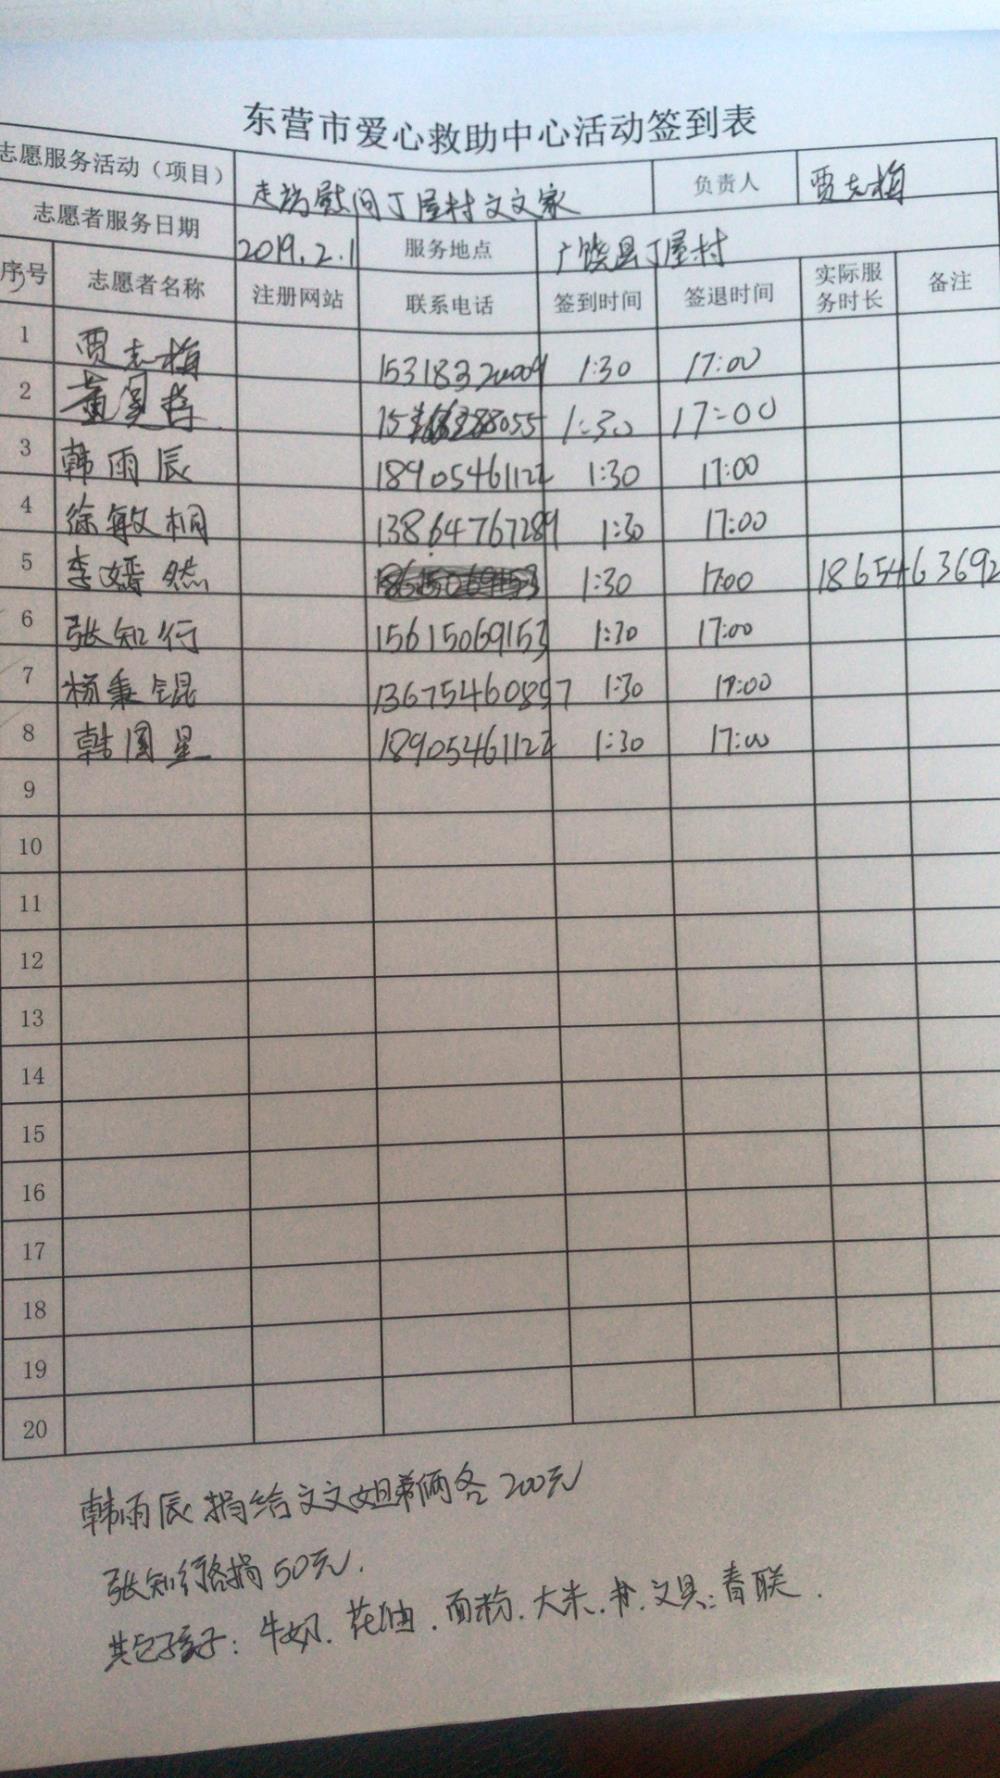 东营市爱心救助中心活动签到表
志愿服务活动（项目） 走访慰问丁屋村文文家 负责人 贾志梅
志愿者服务日期 2019.2.1 服务地点 广饶县丁屋村
序号 志愿者名称 注册网站 联系电话 签到时间 签退时间 实际服务时长 备注
1 贾志梅 1:30 17:00
2 1:30 17:00
3 韩雨辰 1:30 17:00
4 徐敏桐 13864767289 1:30 17:00
5 李嫣然 1:30 17:00 18654463692
6 张知行 15615069153 1:30 17:00
7 杨秉锟 13675460857 1:30 17:00
8 韩国星 1:30 17:00
9
10
11
12
13
14
15
16
17
18
19
20
韩雨辰捐给文文姐弟俩各200元
张知行各捐50元.
其他孩子：牛奶.花油.面粉.大米.书.文具:春联.